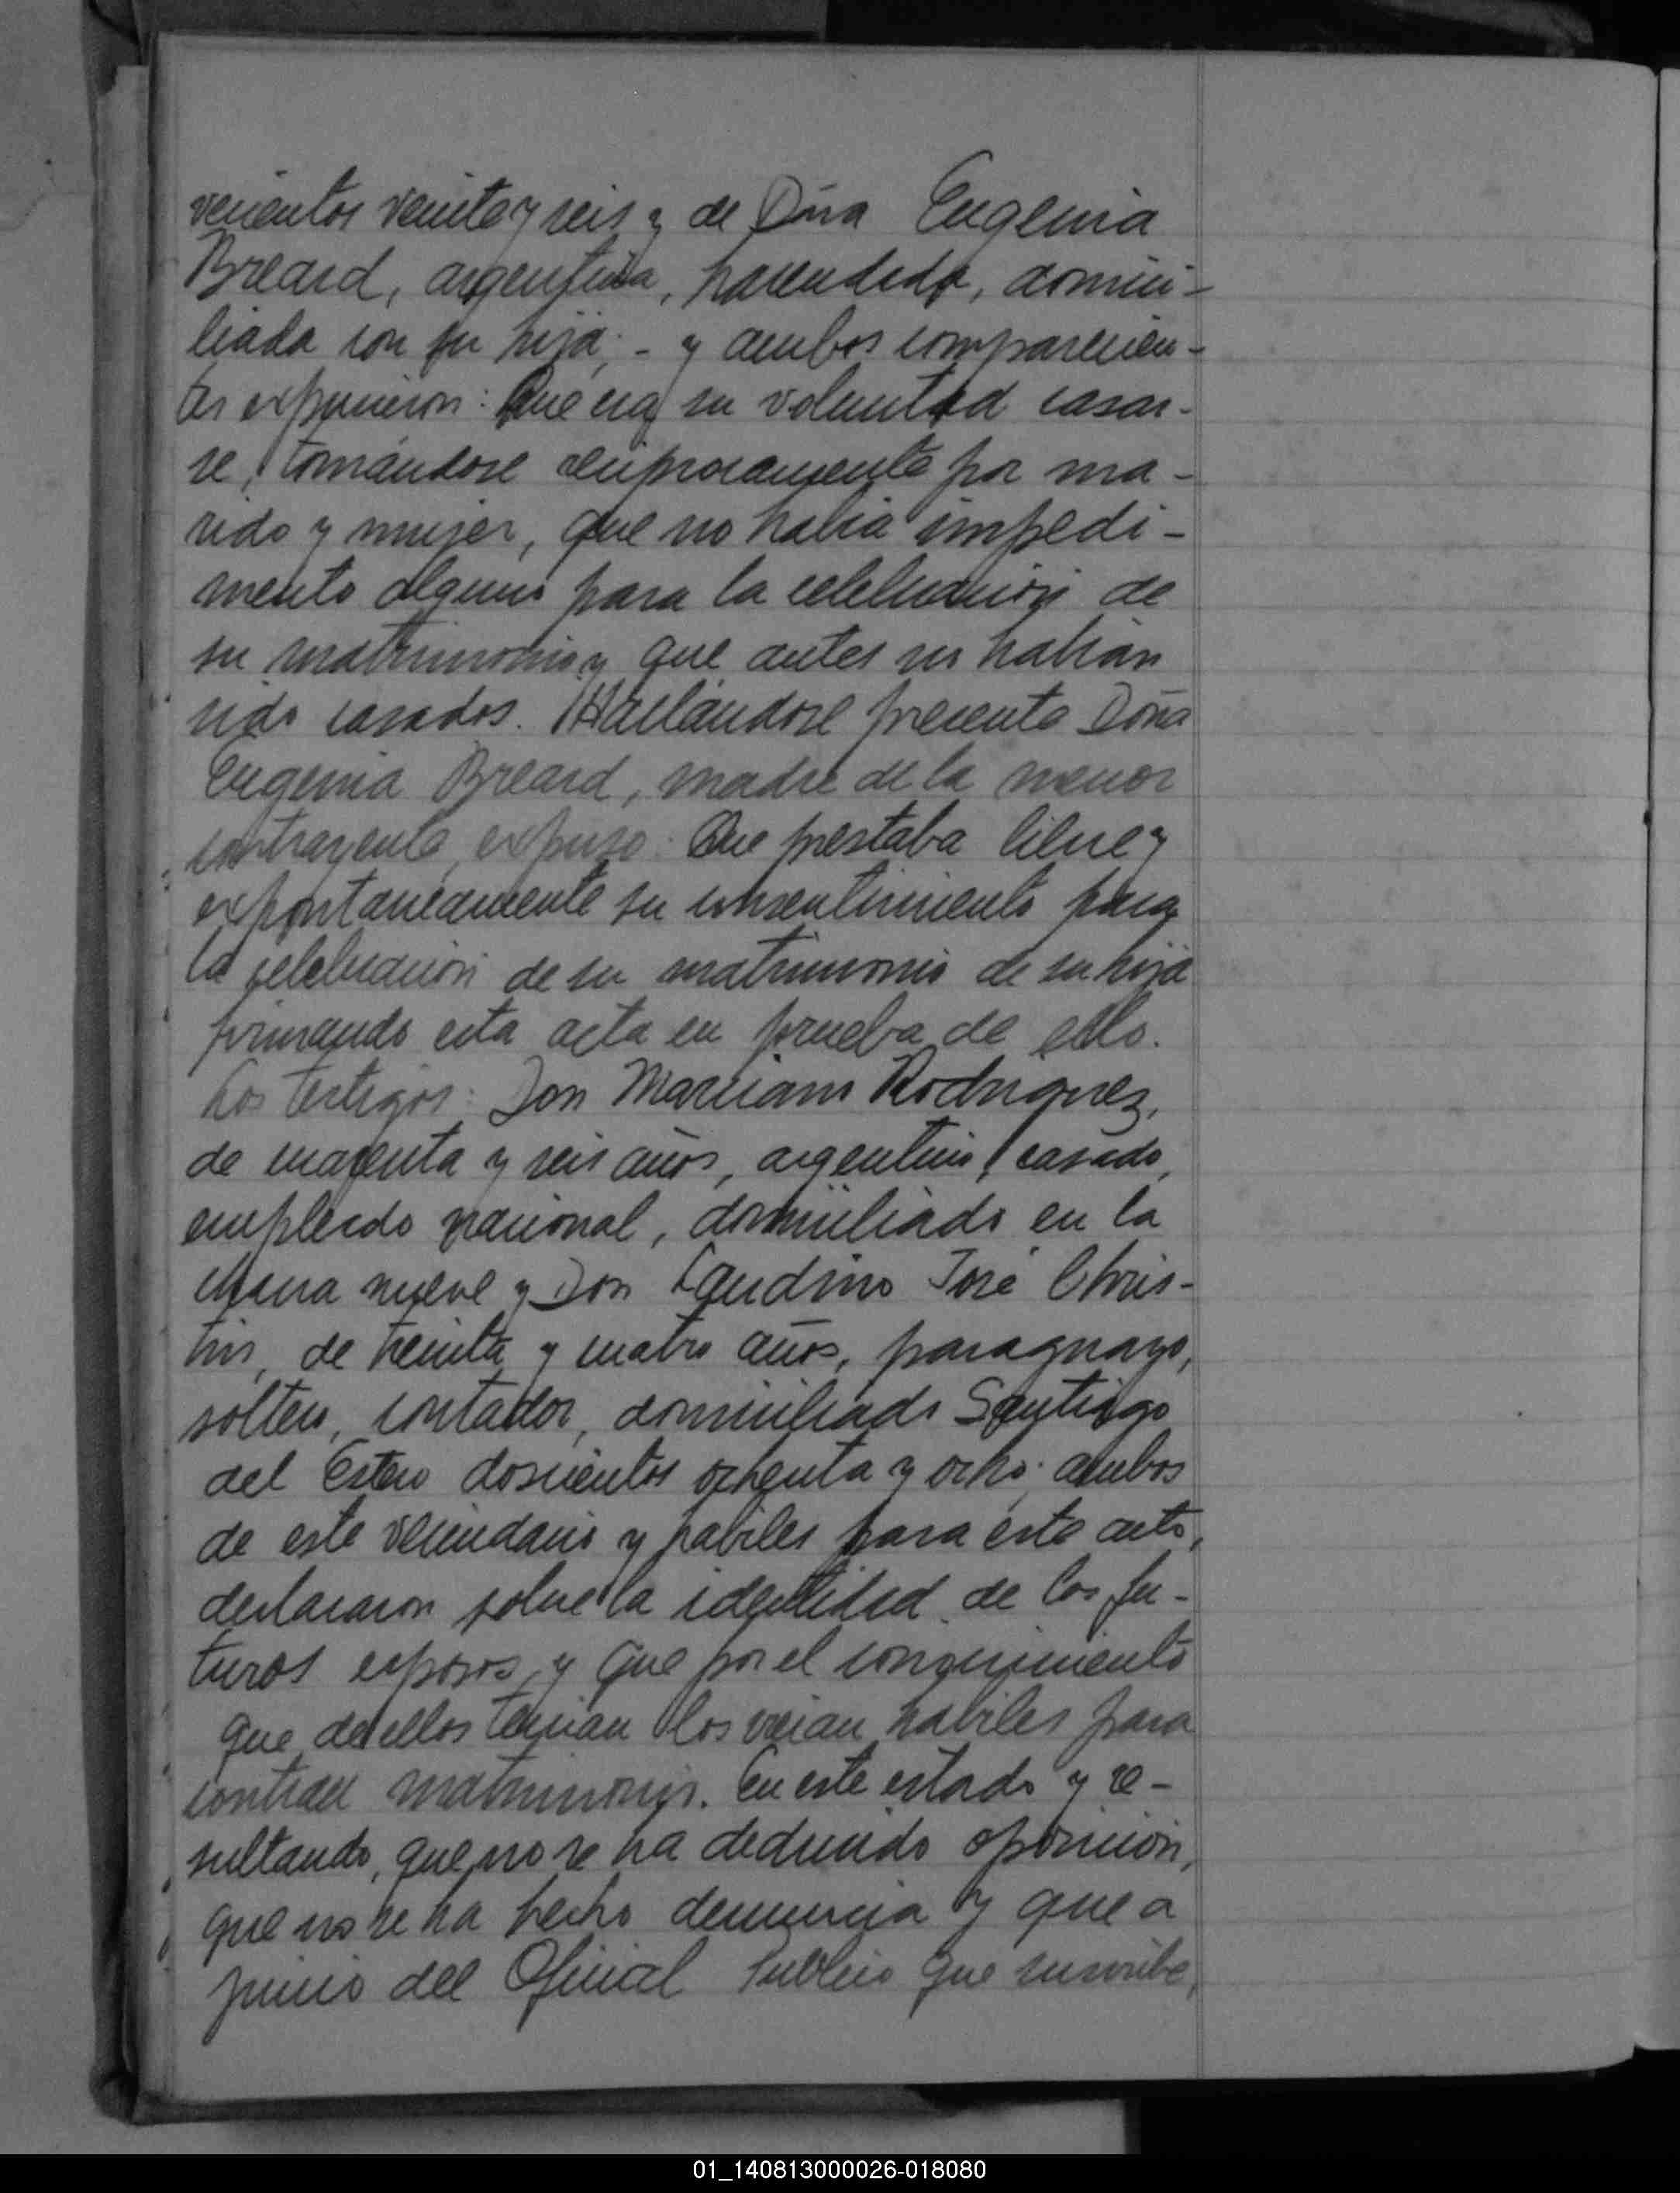 vecientos veinte y seis y de Dña Eugenia
Breard, argentina, hacendada, domici-
liada con su hija; - y ambos comparecien-
tes expusieron: Que era su voluntad casar-
se, tomándose reciprocamente por ma-
rido y mujer, que no habia impedi-
mento alguno para la celebración de
su matrimonio y que antes no habian
sido casados. Hallandose presente Doña
Eugenia Breard, madre de la menor
contrayente, expuso: Que prestaba libre y
expontaneamente su consentimiento para
la celebracion de su matrimonio de su hija
firmando esta acta en prueba de ello.
Los testigos: Don Marciano Rodriguez,
de cuarenta y seis años, argentino, casado,
empleado nacional, domiciliado en la
nueve y Don José Chris-
de treinta y cuatro años, paraguayo,
soltero, contador, domiciliado Santiago
del Estero doscientos ochenta y ocho; ambos
de este vecindario y habiles para este acto,
declararon sobre la identidad de los fu-
turos esposos y que por el conocimiento
que de ellos tenian los creian habiles para
contraer matrimonio. En este estado y re-
sultando, que no se ha deducido oposición,
que no se ha hecho denuncia y que a
juicio del Oficial Publico que suscribe,
01_140813000026-018080